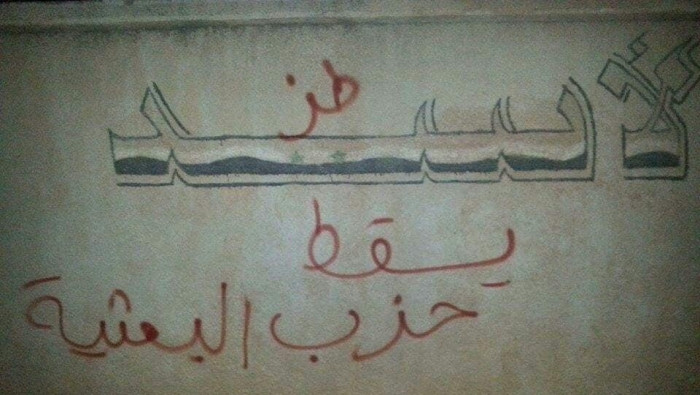 طز
لأسد
يسقط
حزب البعثية